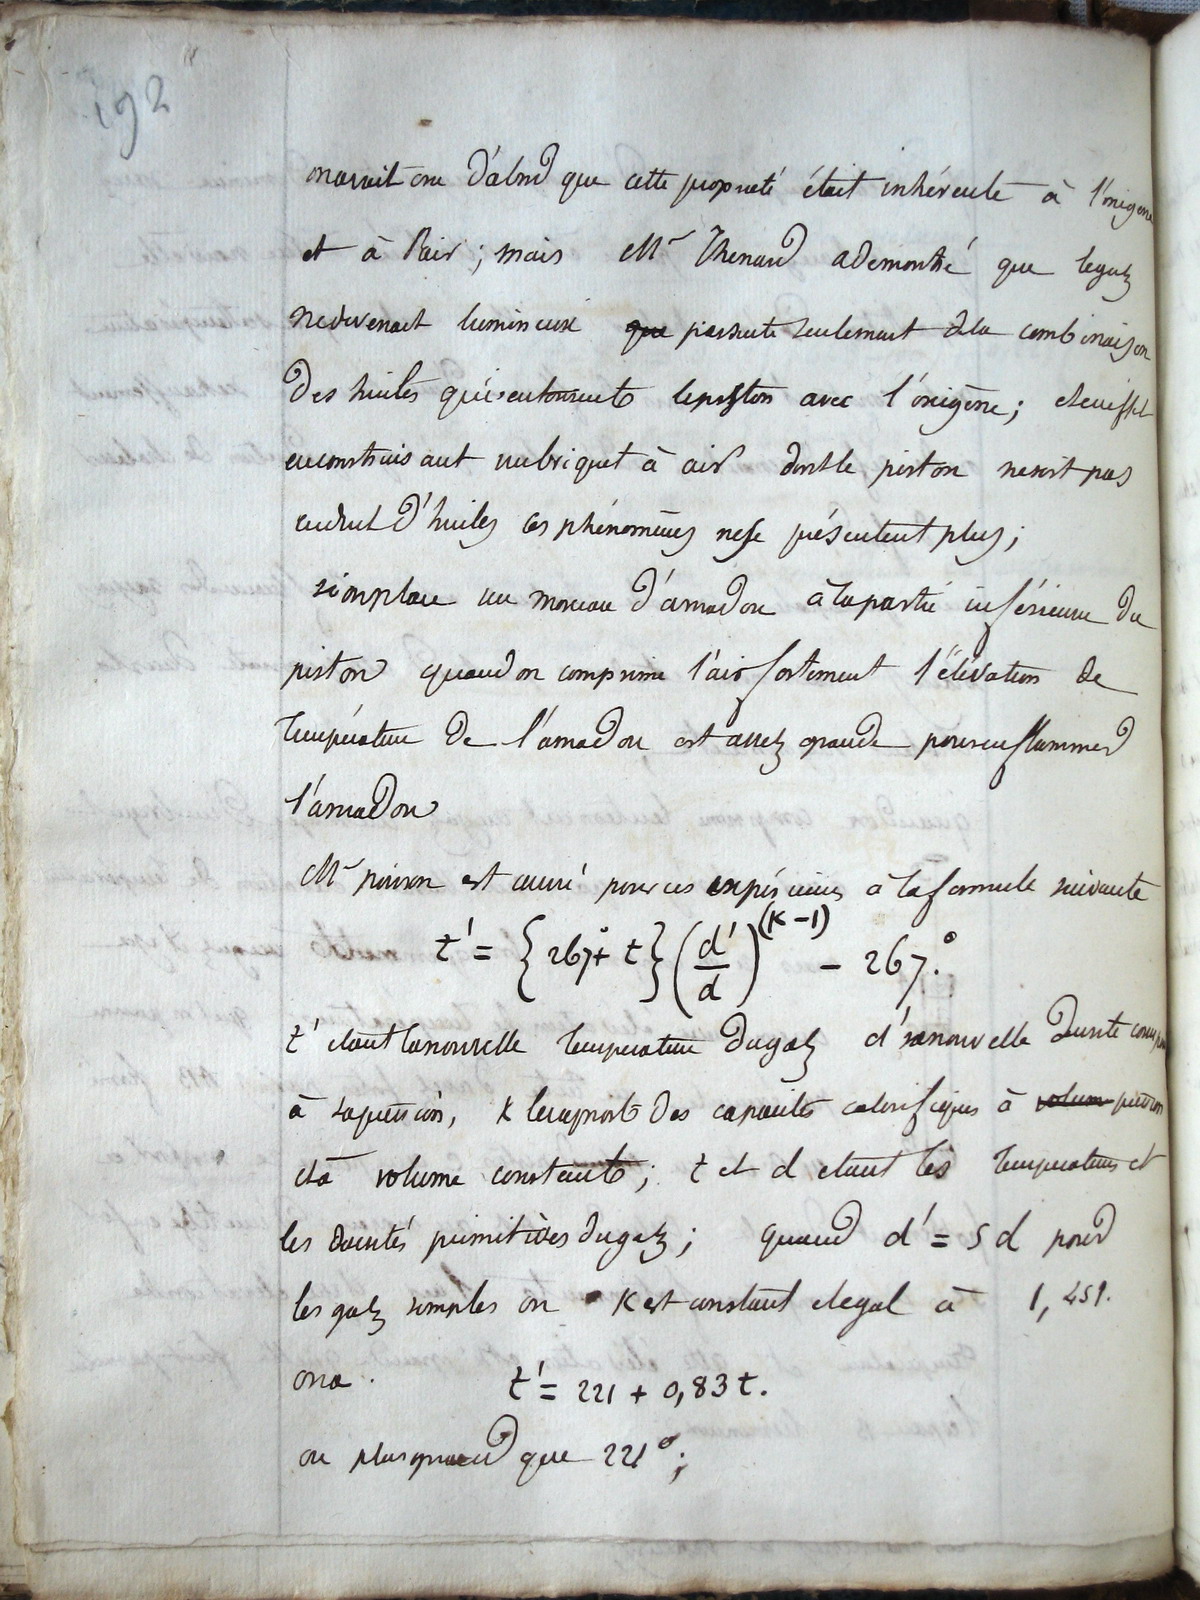 192
on avait cru d'abord que cette propriété était inhérente à l'oxigène
et à l'air; mais Mr Thenard a demontré que le gaz
ne devenait lumineux que par suite seulement de la combinaison
des huiles qui entourent le piston avec l'oxigène; et en effet
en construisant un briquet à air dont le piston ne soit pas
enduit d'huiles ces phénomènes ne se présentent plus;
si on place un morceau d'amadou à la partie inférieure du
piston quand on comprime l'air fortement l'élévation de
température de l'amadou est assez grande pour enflammer
l'amadou
Mr poisson est arrivé pour ces expériences à la formule suivante
t' = {267° + t} (d'/d)^(K-1) - 267.°
t' étant la nouvelle temperature du gaz d' sa nouvelle densité
à sa pression, K le rapport des capacités calorifiques à volum pression
et à volume constants; t et d etant les temperatures et
les densités primitives du gaz; quand d' = 5 d pour
les gaz simples on K est constant et egal à 1,451.
on a. t' = 221 + 0,83 t.
ou plus grand que 221°;